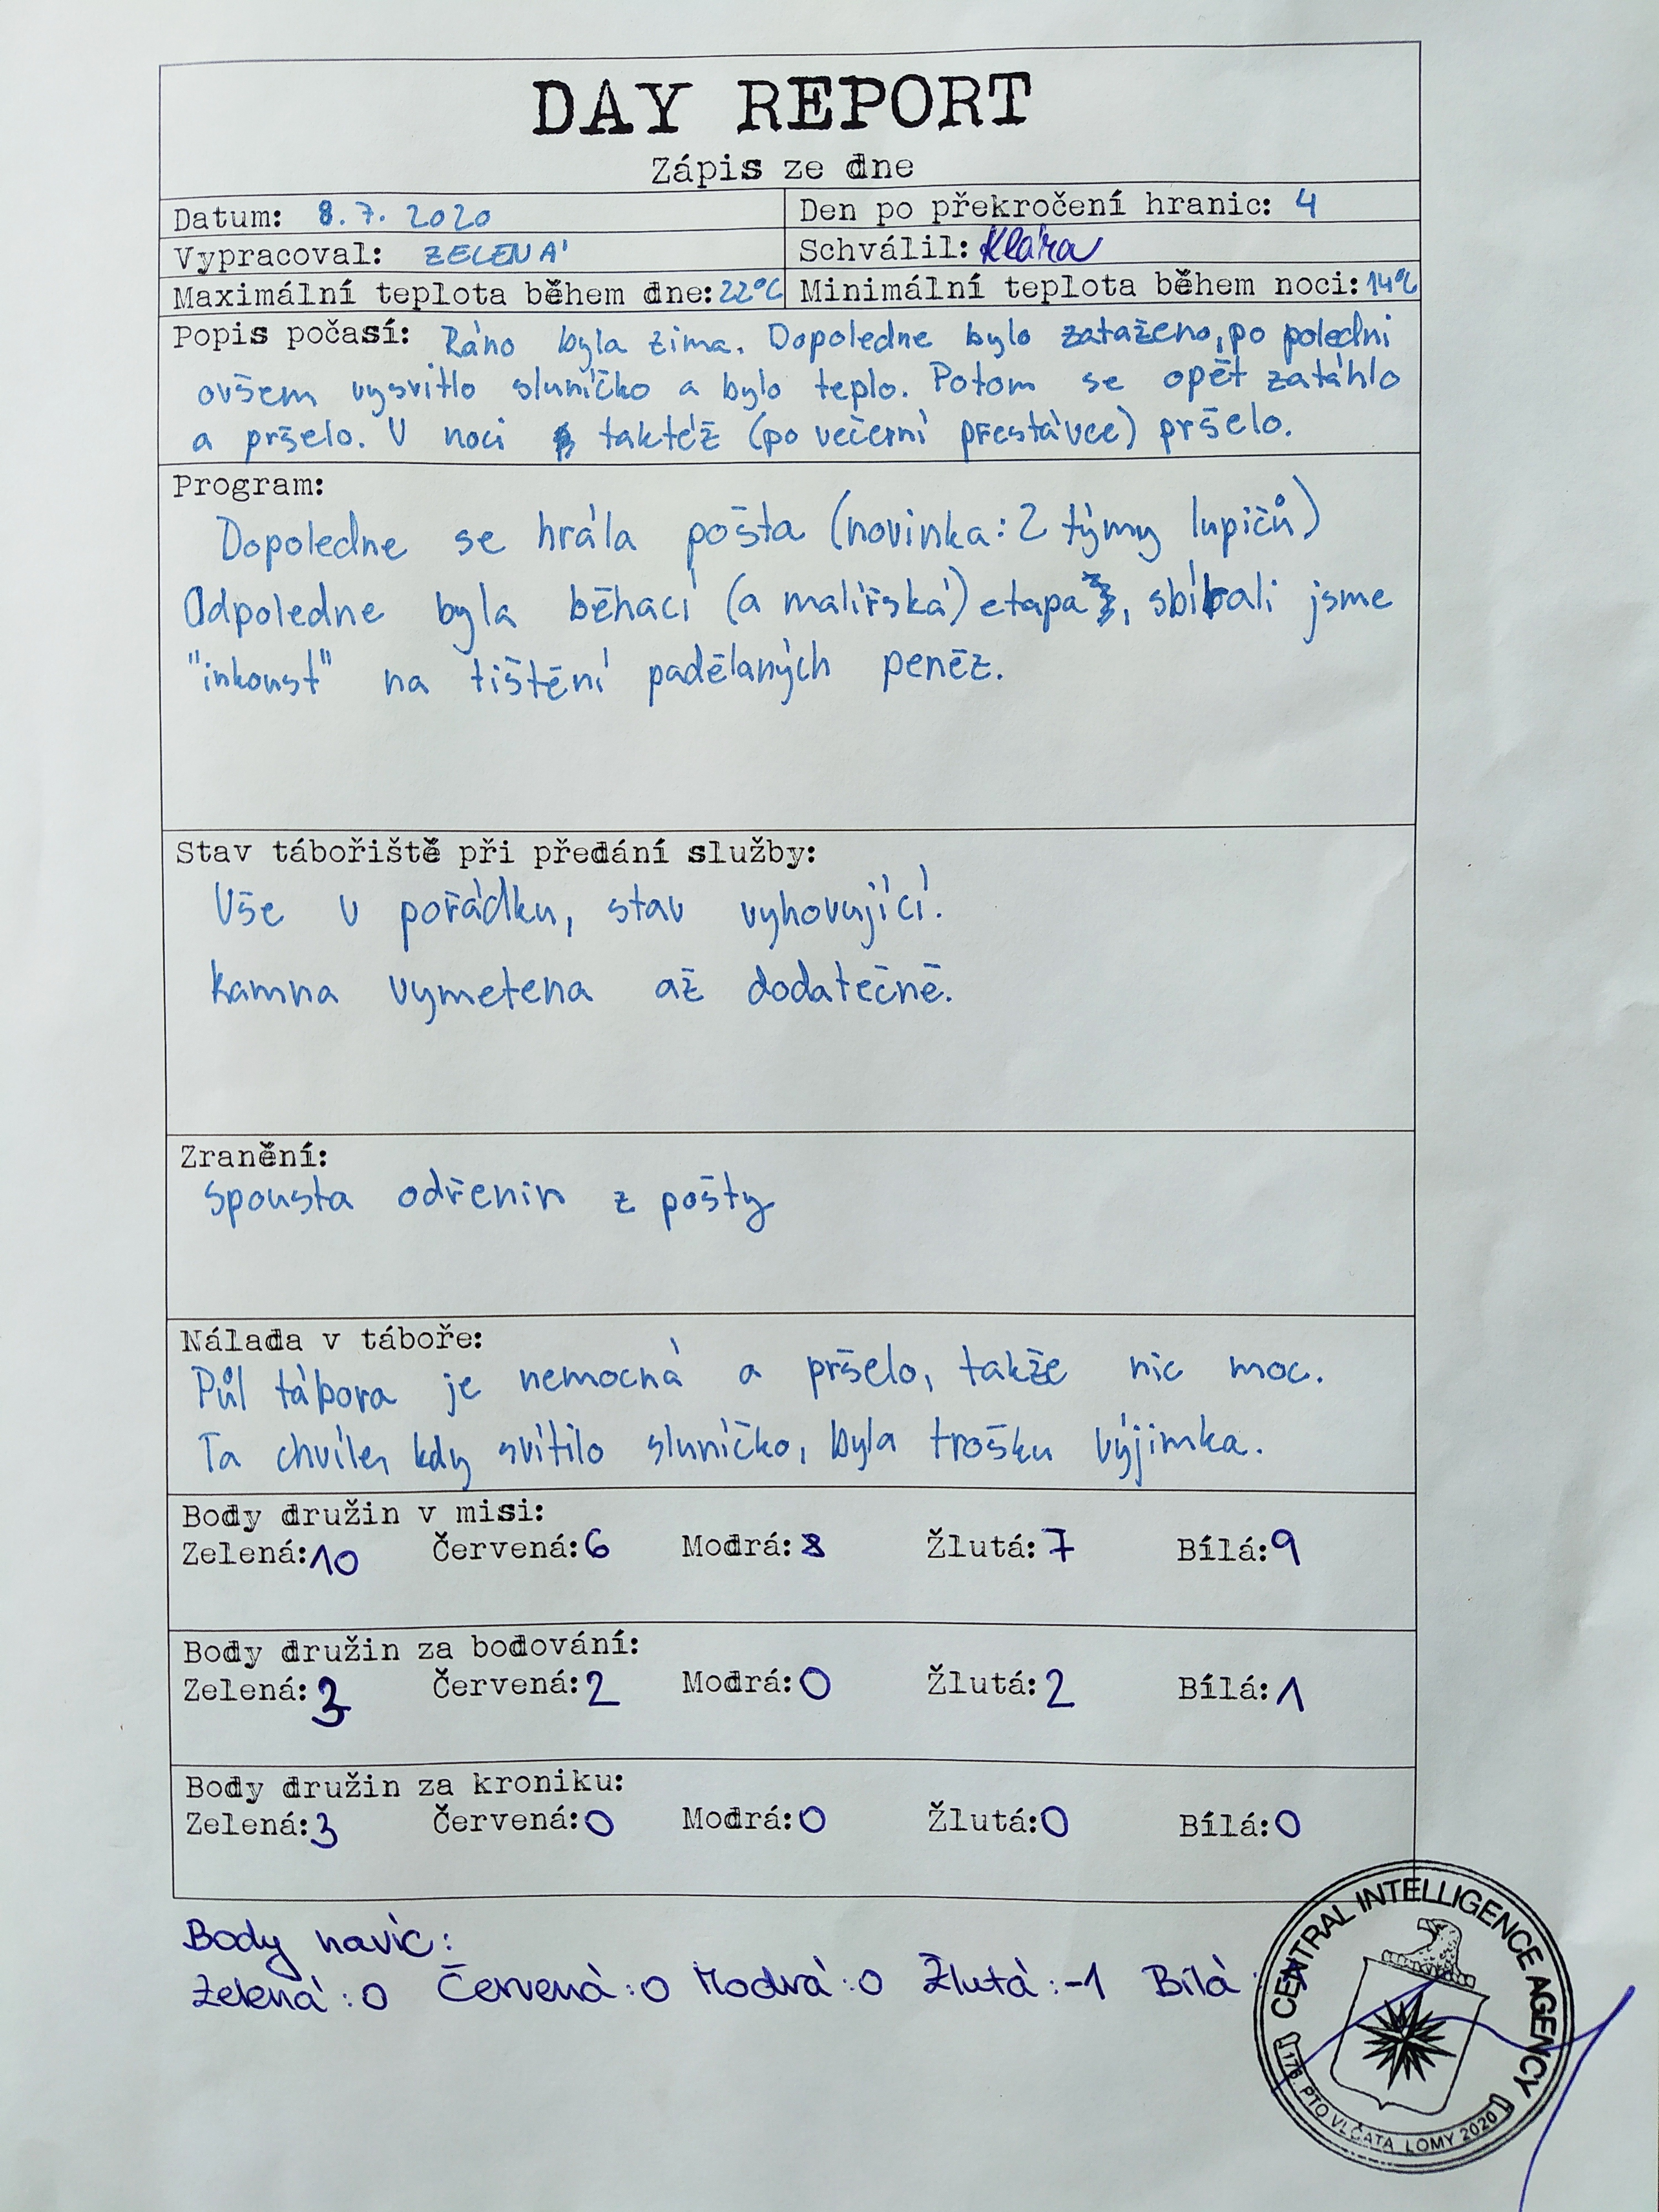 DAY REPORT
Zápis ze dne
Datum: 8. 7. 2020
Den po překročení hranic: 4
Vypracoval: ZELENÁ
Schválil: Klára
Maximální teplota během dne: 22°C
Minimální teplota během noci: 14°C
Popis počasí: Ráno byla zima. Dopoledne bylo zataženo, po poledni
ovšem vysvitlo sluníčko a bylo teplo. Potom se opět zatáhlo
a pršelo. V noci taktéž (po večerní přestávce) pršelo.
Program:
Dopoledne se hrála pošta (novinka: 2 týmy lupičů)
Odpoledne byla běhací (a malířská) etapa, sbírali jsme
"inkoust" na tištění padělaných peněz.
Stav tábořiště při předání služby:
Vše v pořádku, stav vyhovující.
Kamna vymetena až dodatečně.
Zranění:
Spousta odřenin z pošty
Nálada v táboře:
Půl tábora je nemocná a pršelo, takže nic moc.
Ta chvíle, kdy svítilo sluníčko, byla trošku výjimka.
Body družin v misi:
Zelená: 10 Červená: 6 Modrá: 8 Žlutá: 7 Bílá: 9
Body družin za bodování:
Zelená: 3 Červená: 2 Modrá: 0 Žlutá: 2 Bílá: 1
Body družin za kroniku:
Zelená: 3 Červená: 0 Modrá: 0 Žlutá: 0 Bílá: 0
Body navíc:
Zelená: 0 Červená: 0 Modrá: 0 Žlutá: -1 Bílá:
CENTRAL INTELLIGENCE AGENCY
176. PTO VLČATA LOMY 2020